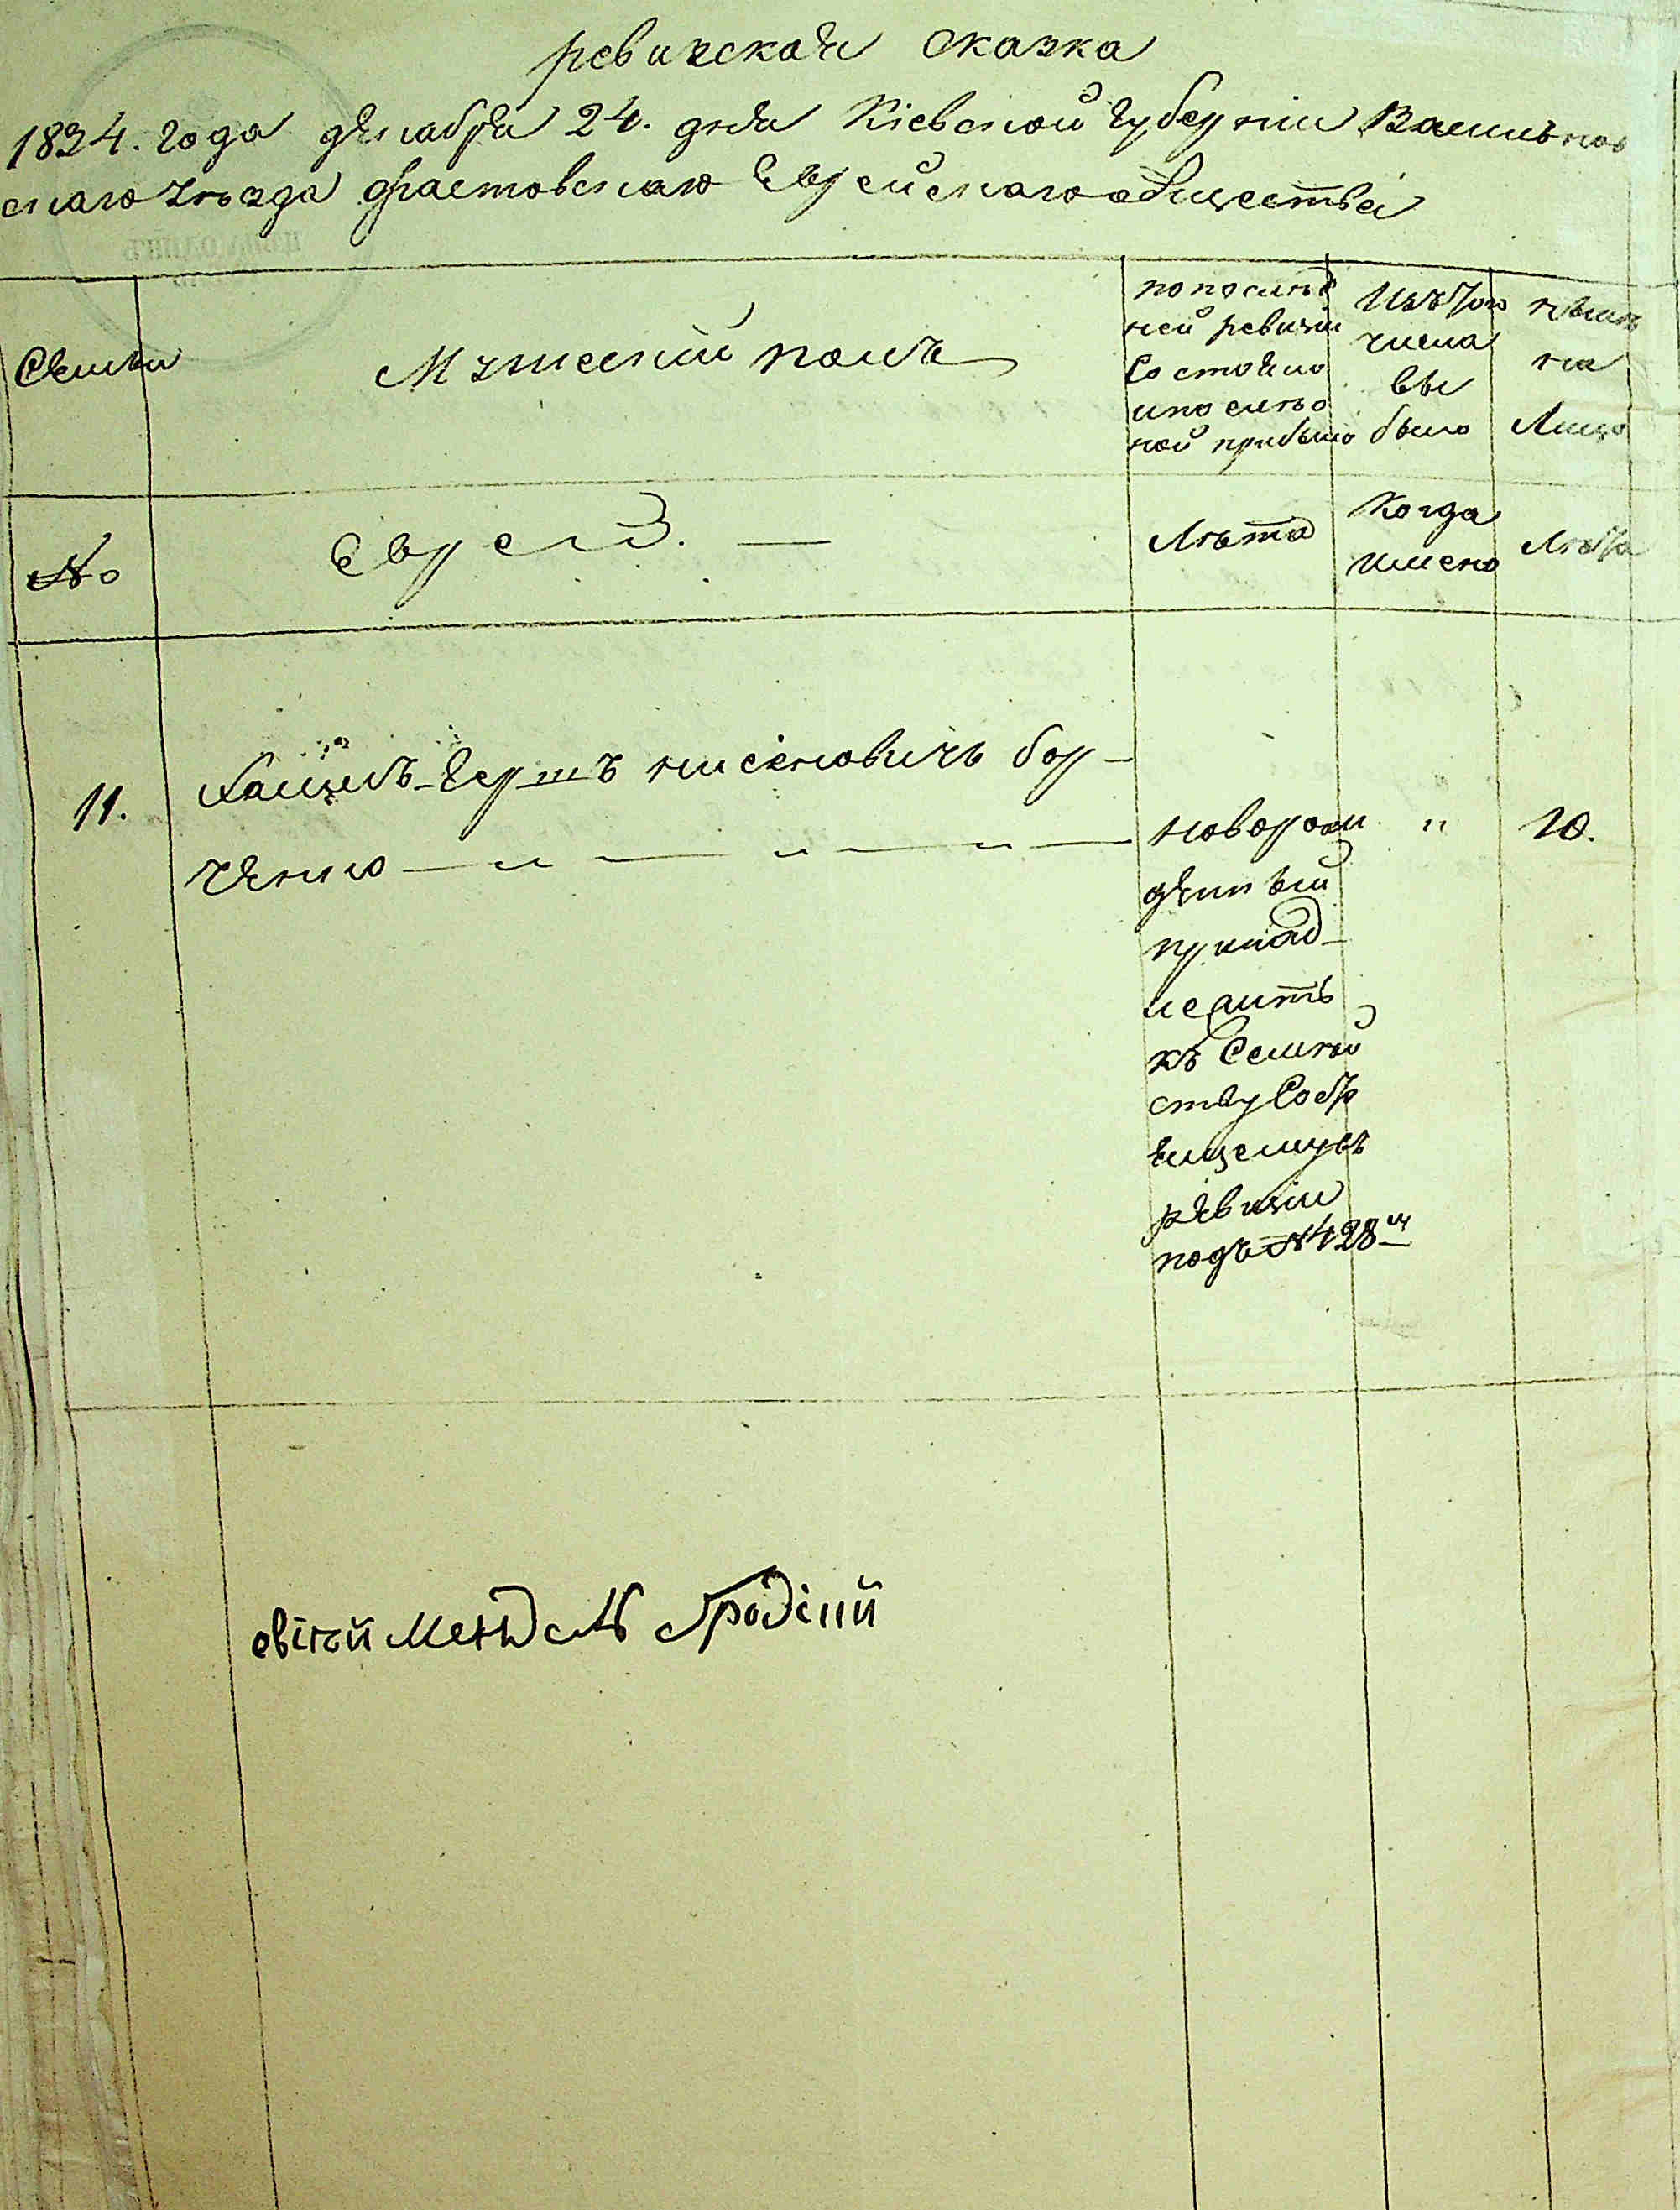 ревизская сказка
1834. года декабря 24. дня Кіевской губерніи Васильков
скаго уѣзда фастовскаго Еврейскаго общества
Семьи
Мужескій полъ
по послѣд
ней ревизіи
Состояло
и после о
ной прибыло
Изъ Того
числа
вы
было
нынѣ
на
Лицо
№
Евреи. —
Лѣта
Когда
имено
Лѣта
11.
Гершъ нисеновичъ бор-
ченко
новорож
денный
принад-
лежитъ
къ Семей
ству Собр
ревизіи
подъ №428м
"
10.
Мендель